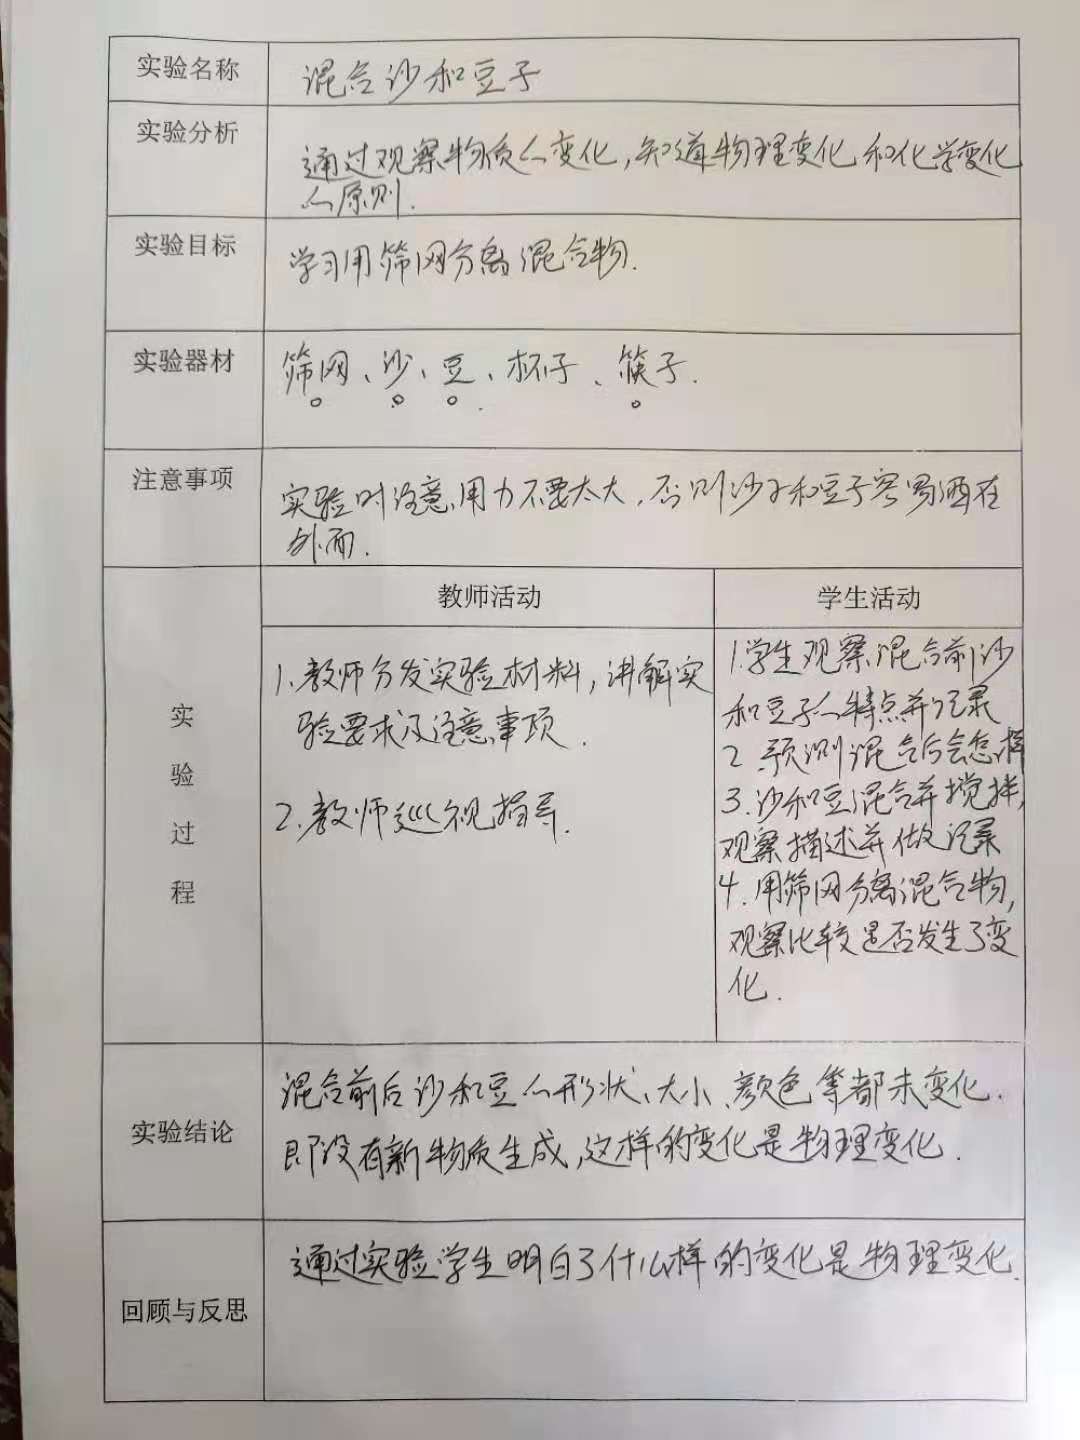 实验名称
混合沙和豆子
实验分析
通过观察物质的变化,知道物理变化和化学变化
的原则.
实验目标
学习用筛网分离混合物.
实验器材
筛网、沙、豆、杯子、筷子.
注意事项
实验时注意,用力不要太大,否则沙子和豆子容易洒在
外面.
实验过程
教师活动
学生活动
1.教师分发实验材料,讲解实
验要求及注意事项.
2.教师巡视指导.
1.学生观察混合前沙
和豆子的特点并记录
2 预测混合后会怎样
3.沙和豆混合并搅拌,
观察描述并做记录
4.用筛网分离混合物,
观察比较是否发生了变
化.
实验结论
混合前后沙和豆的形状、大小、颜色等都未变化.
即没有新物质生成,这样的变化是物理变化.
回顾与反思
通过实验学生明白了什么样的变化是物理变化.